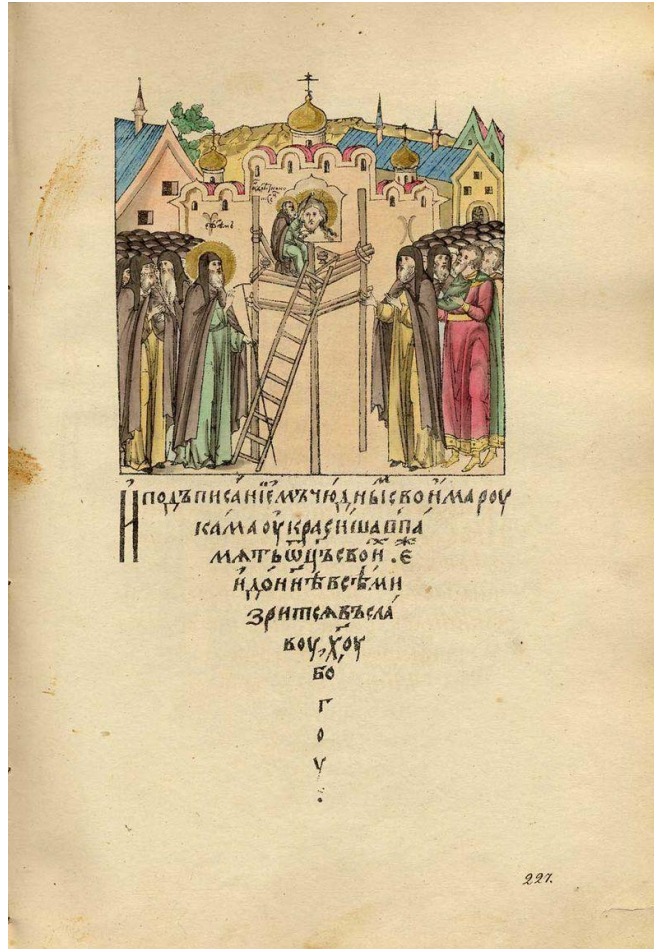 Ефрѣмъ
И подъписанїемъ чюднымъ своима роу
кама оукрасиша в па
мять ѿцъ своих. еже
и до н҃нѣ всѣми
зритсѧ въ сла
воу х҃оу
бо
г
о
у
227.